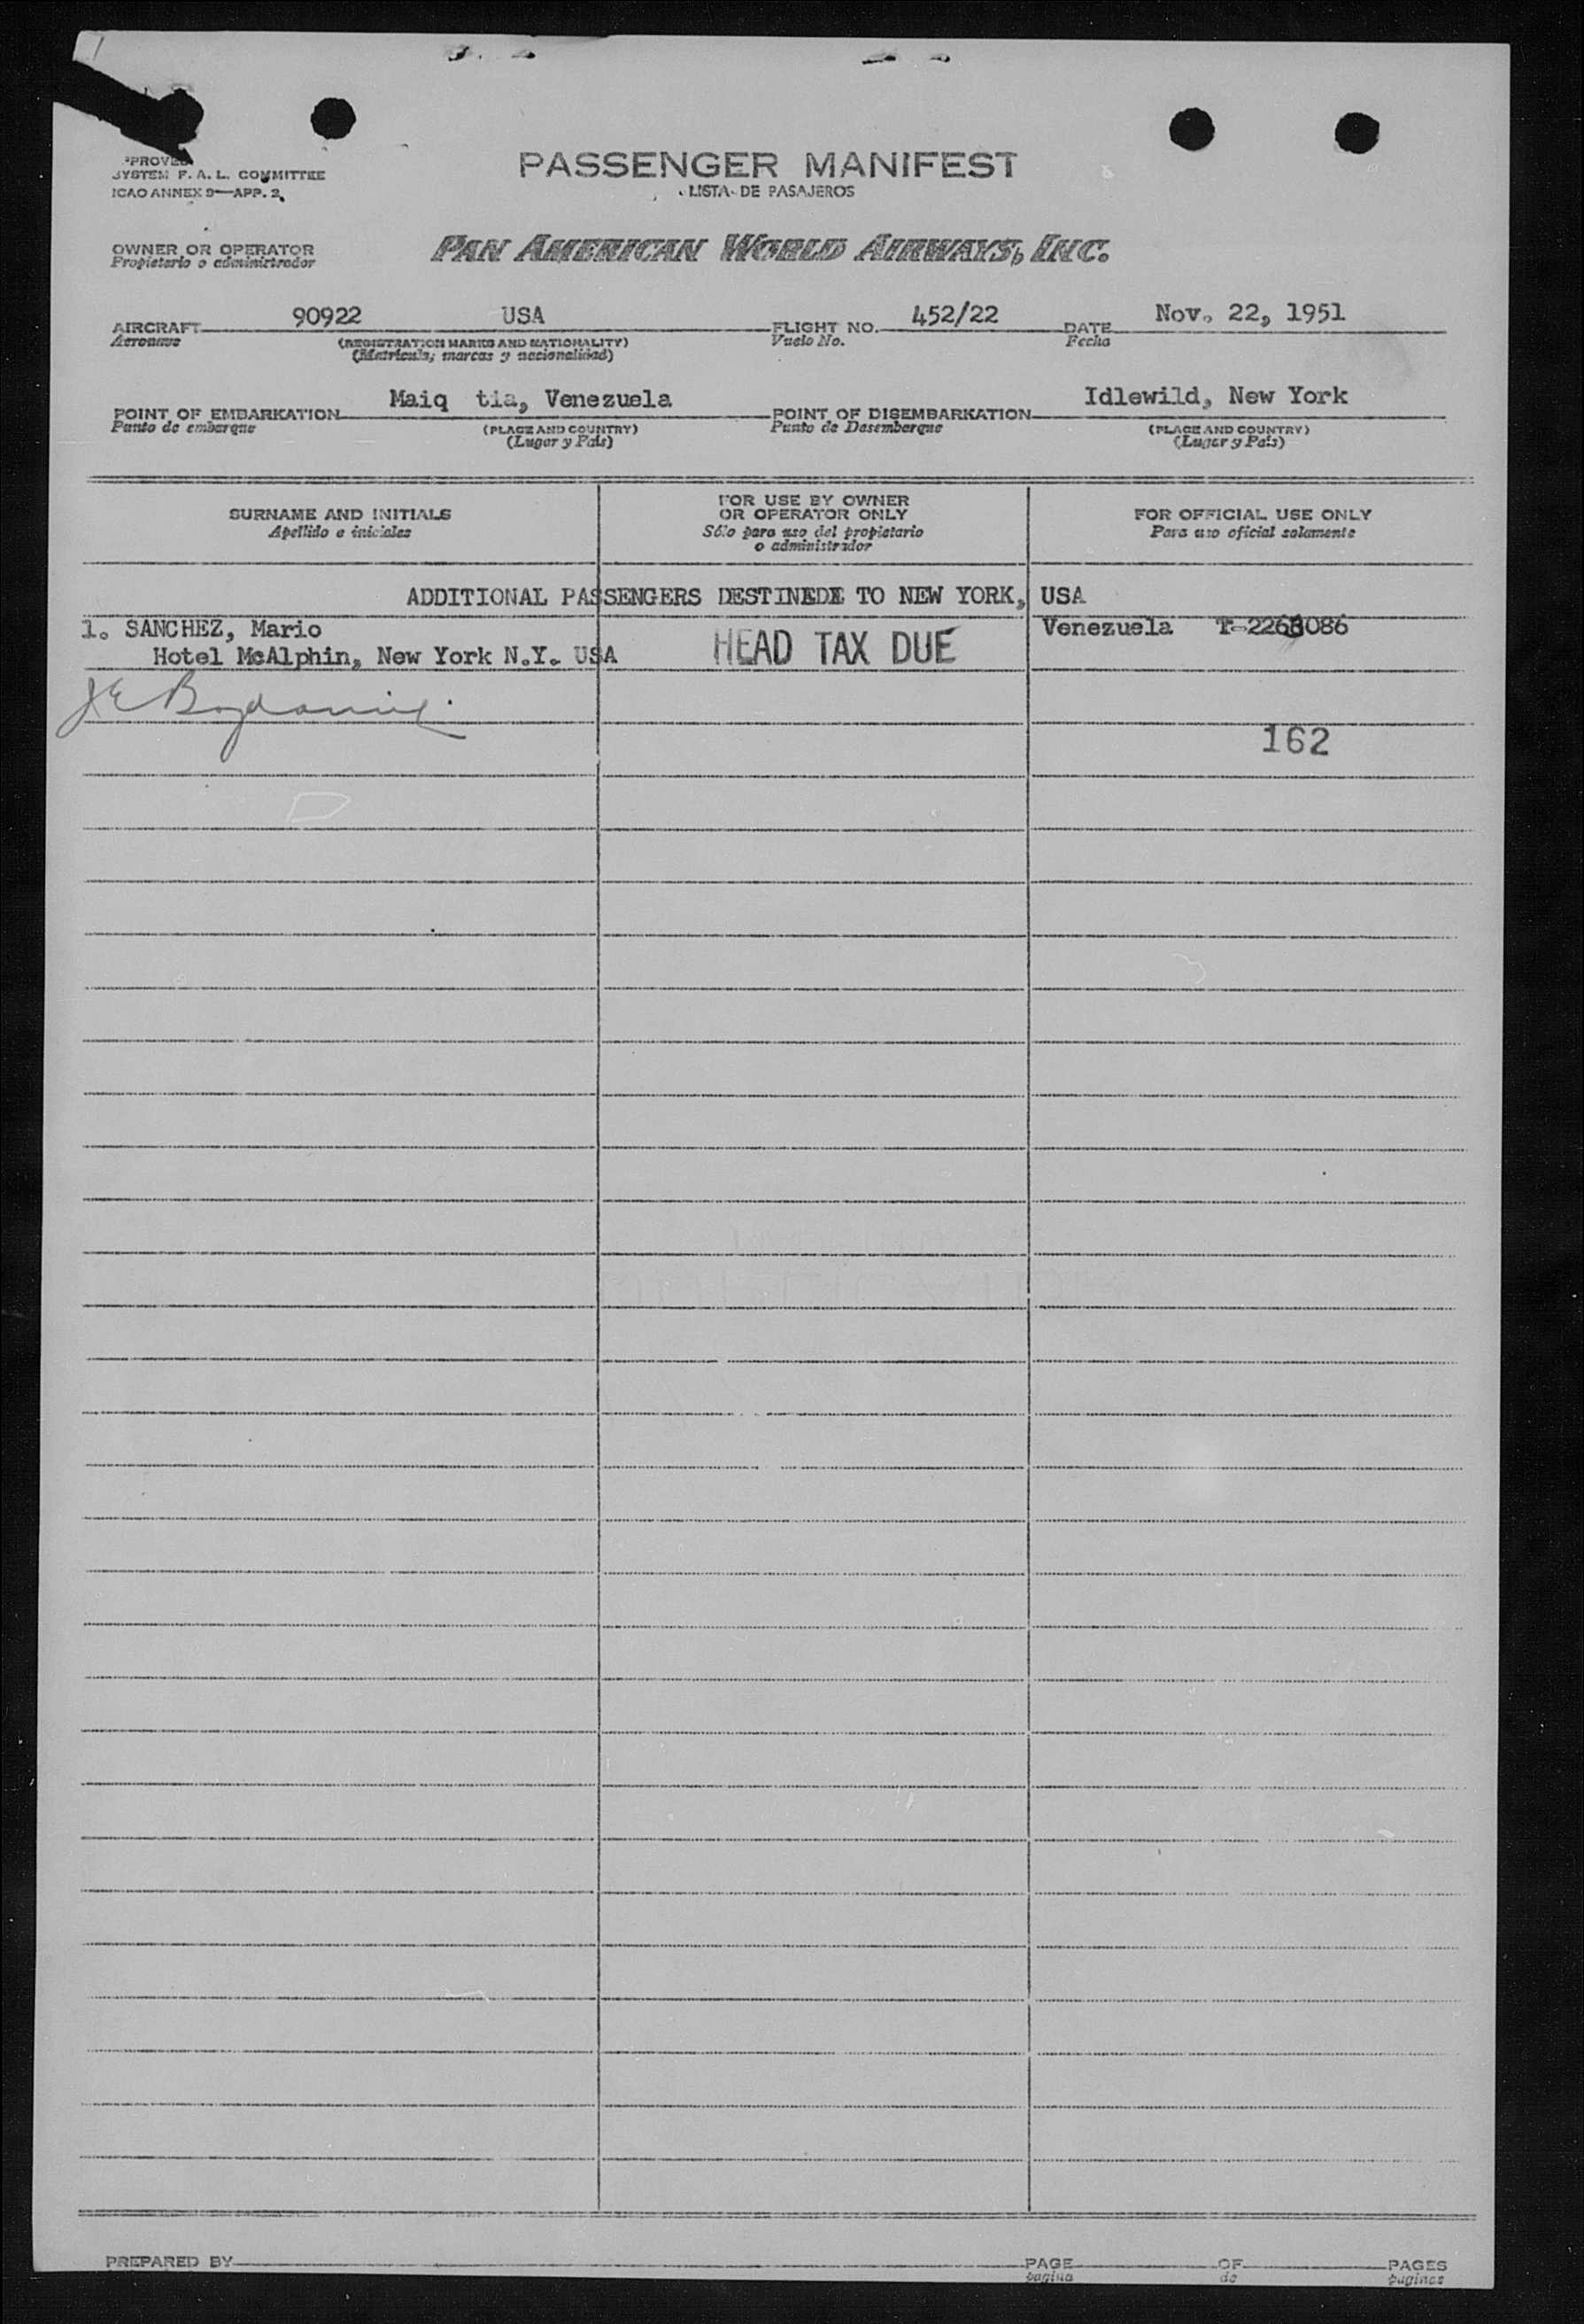 PASSENGER MANIFEST
LISTA DE PASAJEROS
SYSTEM F. A. L. COMMITTEE
ICAO ANNEX 9—APP. 2
OWNER OR OPERATOR
Propietario o administrador
PAN AMERICAN WORLD AIRWAYS, INC.
AIRCRAFT 90922 USA FLIGHT NO. 452/22 DATE Nov. 22, 1951
Aeronave (REGISTRATION MARKS AND NATIONALITY) Vuelo No. Fecha
(Matricula, marcas y nacionalidad)
POINT OF EMBARKATION Maiq tia, Venezuela POINT OF DISEMBARKATION Idlewild, New York
Punto de embarque (PLACE AND COUNTRY) Punto de Desembarque (PLACE AND COUNTRY)
(Lugar y País) (Lugar y País)
SURNAME AND INITIALS
Apellido e iniciales
FOR USE BY OWNER
OR OPERATOR ONLY
Sólo para uso del propietario
o administrador
FOR OFFICIAL USE ONLY
Para uso oficial solamente
ADDITIONAL PASSENGERS TO NEW YORK, USA
1. SANCHEZ, Mario Venezuela
Hotel McAlphin, New York N.Y. USA HEAD TAX DUE
162
PREPARED BY PAGE OF PAGES
pagina de paginas